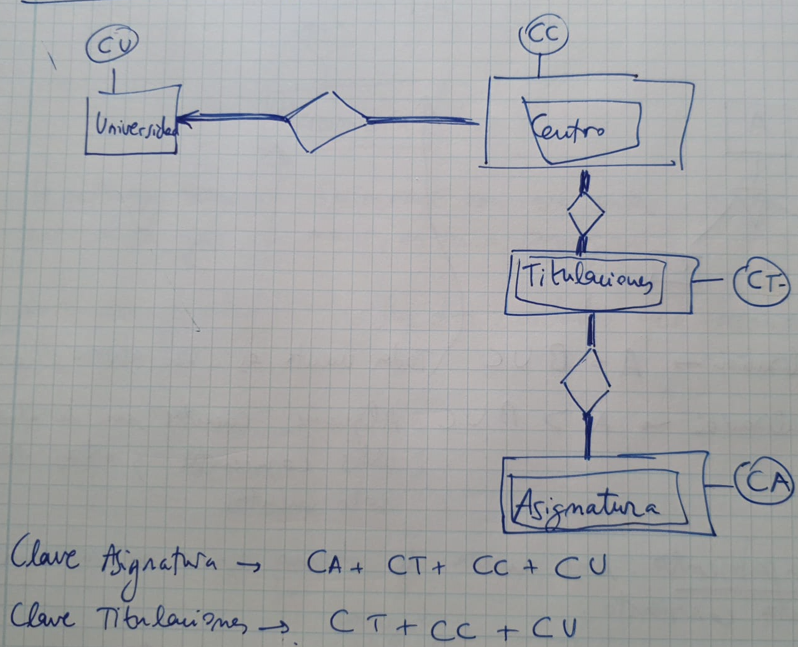 CU
CC
Universidad
Centro
Titulaciones
CT
Asignatura
CA
Clave Asignatura → CA + CT + CC + CU
Clave Titulaciones → CT + CC + CU